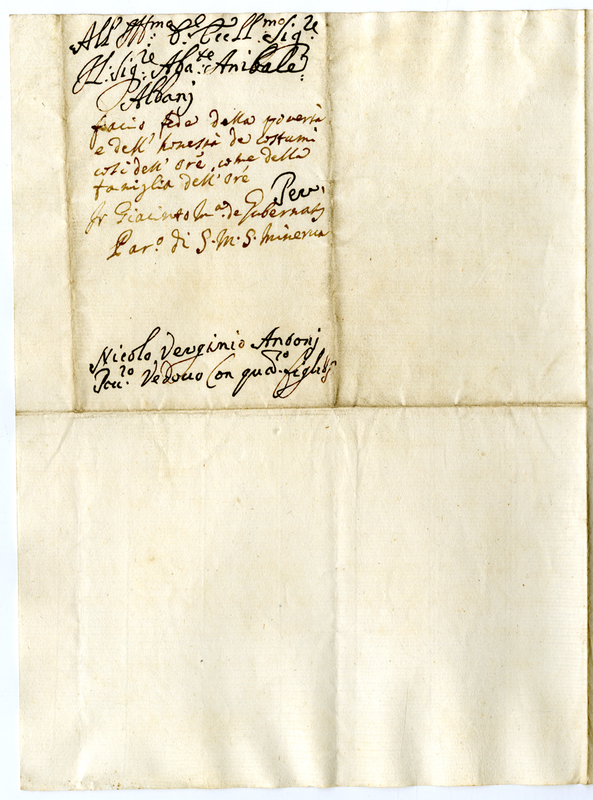 All' Ill:mo e Ecell:mo Sig:re
Il Sig:re Aba:te Anibale
Albanj
faccio fede della povertà
e dell' honestà de costumi
così dell' Ore come della
famiglia dell' Ore
Per
fr Giacinto M.a de Gubernatis
Par.o di S. M. S. Minerva
Nicolo Verginio Antonj
Pou:ro Vedouo Con quat:ro figli